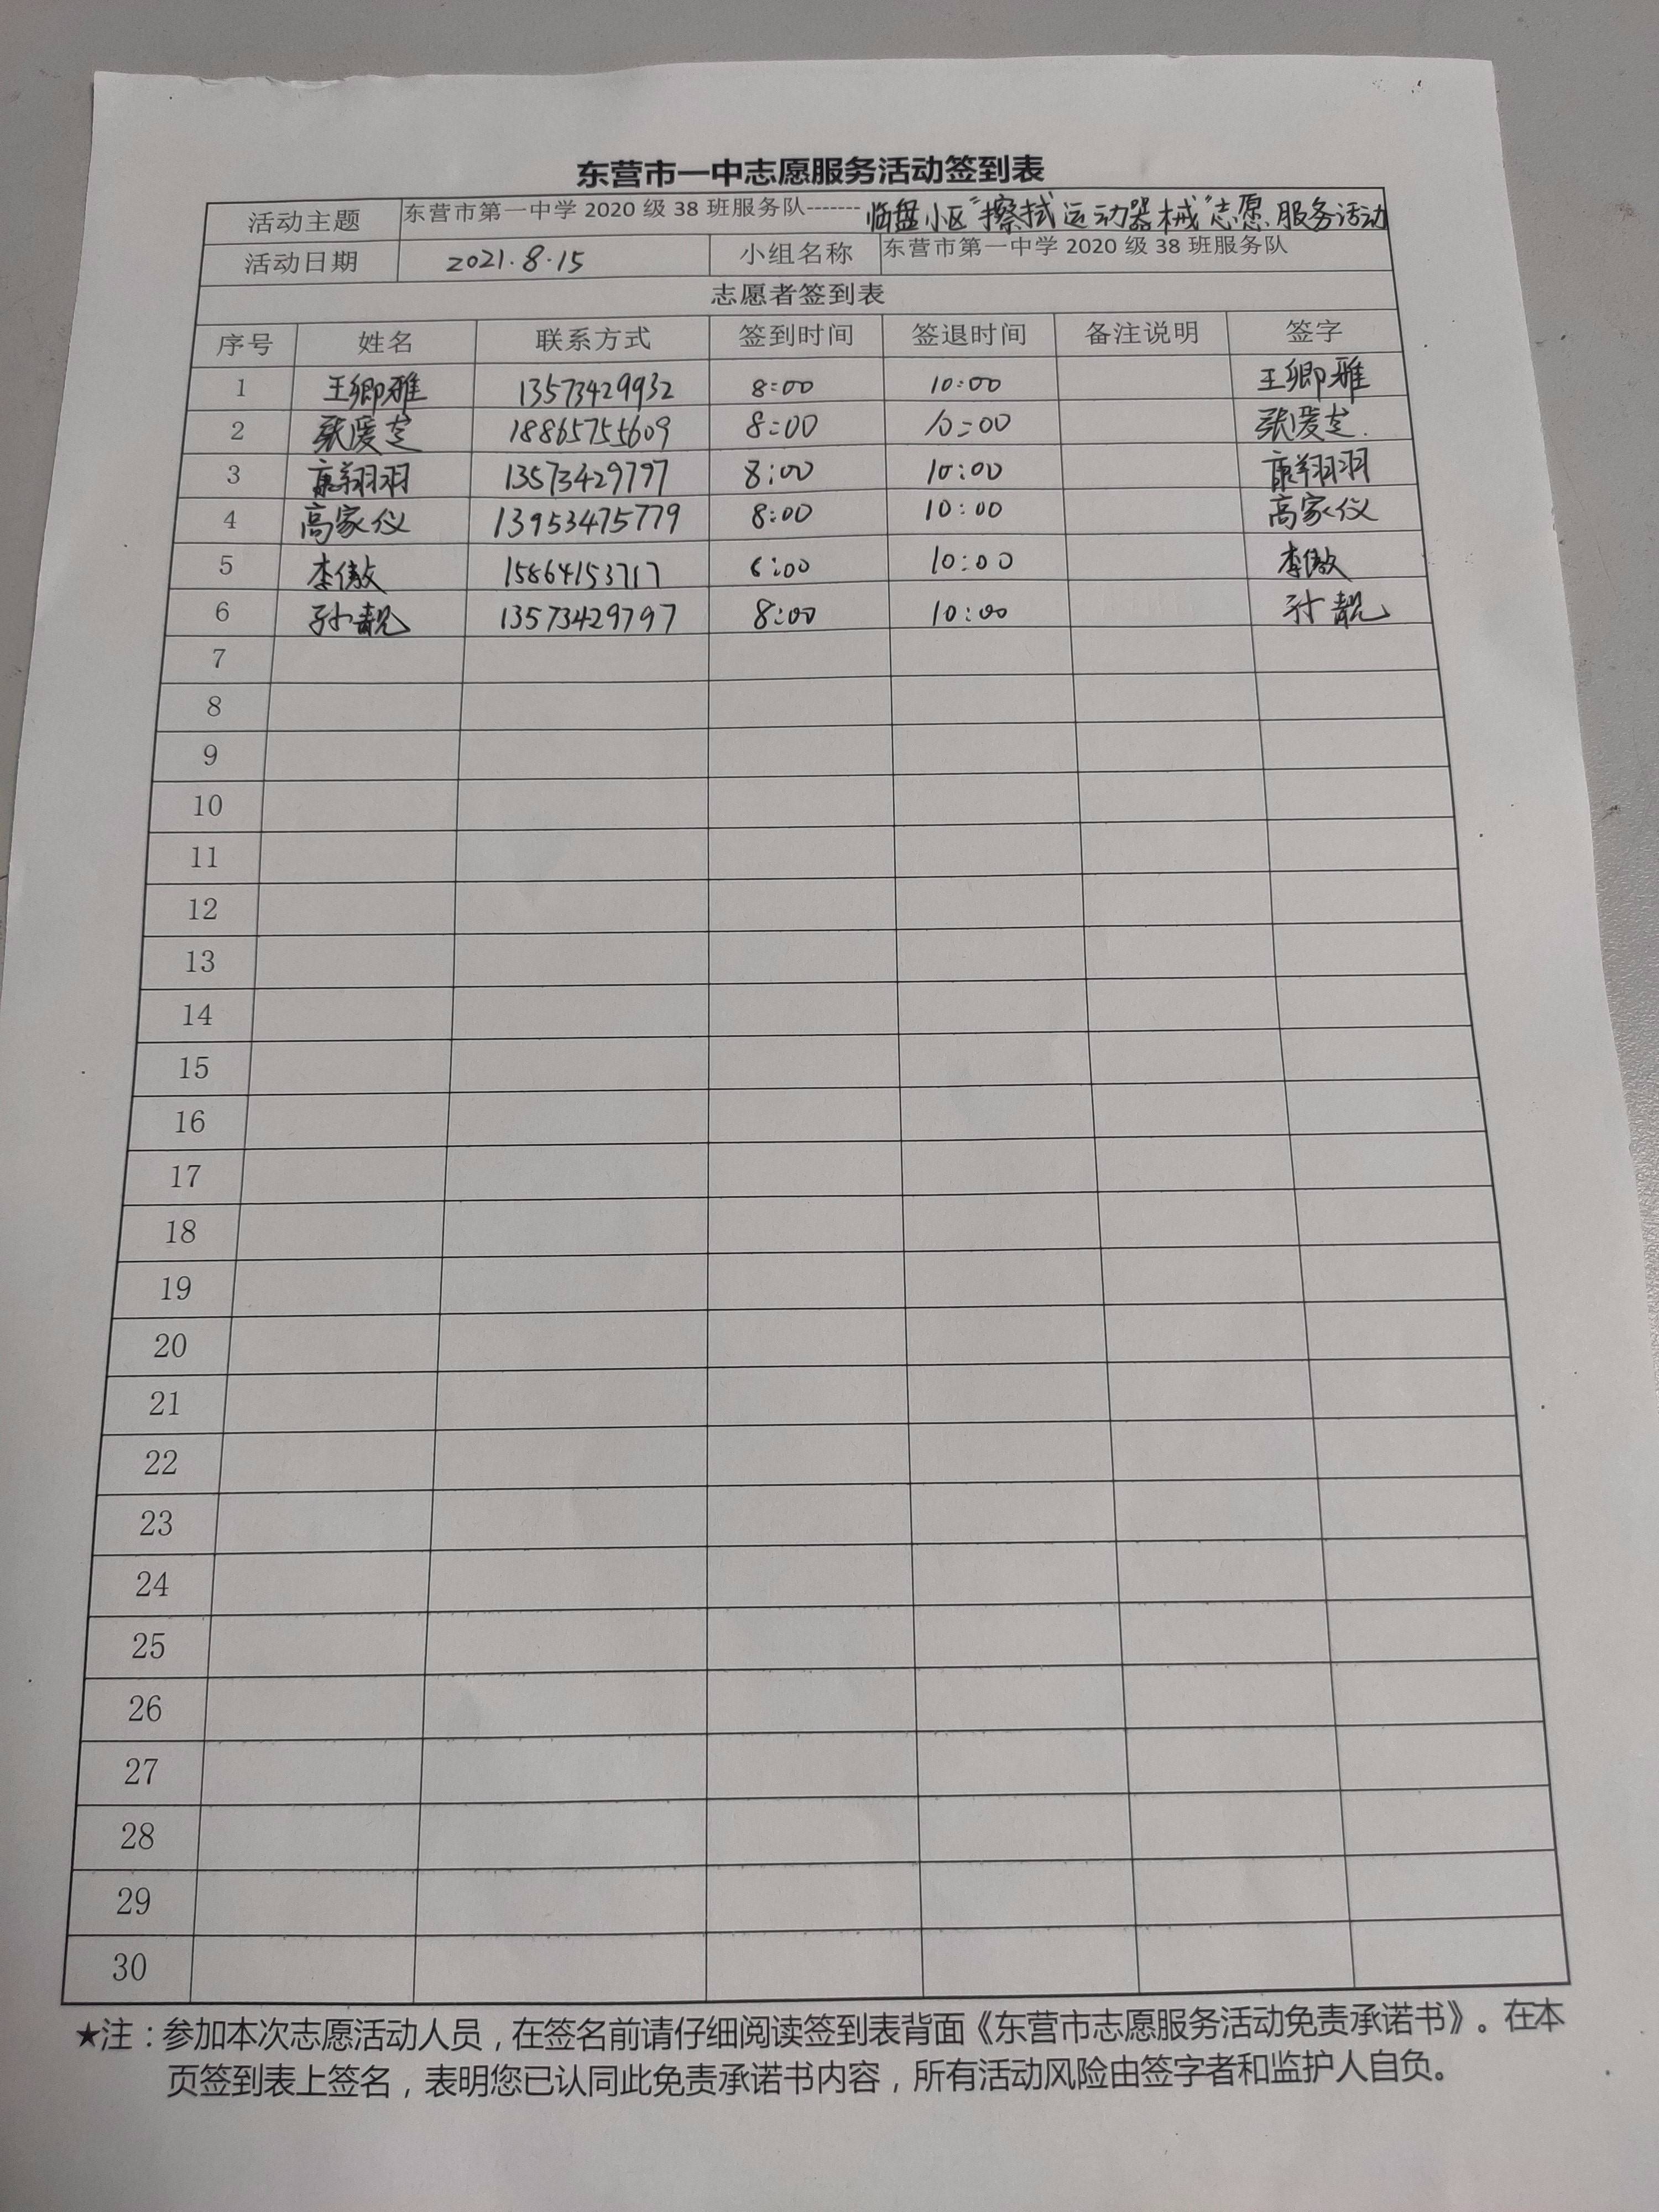 东营市一中志愿服务活动签到表
活动主题 东营市第一中学 2020 级 38 班服务队------- 临盘小区“擦拭运动器械”志愿服务活动
活动日期 2021.8.15 小组名称 东营市第一中学 2020 级 38 班服务队
志愿者签到表
序号 姓名 联系方式 签到时间 签退时间 备注说明 签字
1 王卿雅 13573429932 8:00 10:00 王卿雅
2 18865755609 8:00 10:00
3 康翔羽 13573429797 8:00 10:00 康翔羽
4 高家仪 13953475779 8:00 10:00 高家仪
5 李傲 15864153717 10:00 李傲
6 孙靓 13573429797 8:00 10:00 孙靓
7
8
9
10
11
12
13
14
15
16
17
18
19
20
21
22
23
24
25
26
27
28
29
30
★注：参加本次志愿活动人员，在签名前请仔细阅读签到表背面《东营市志愿服务活动免责承诺书》。在本
页签到表上签名，表明您已认同此免责承诺书内容，所有活动风险由签字者和监护人自负。